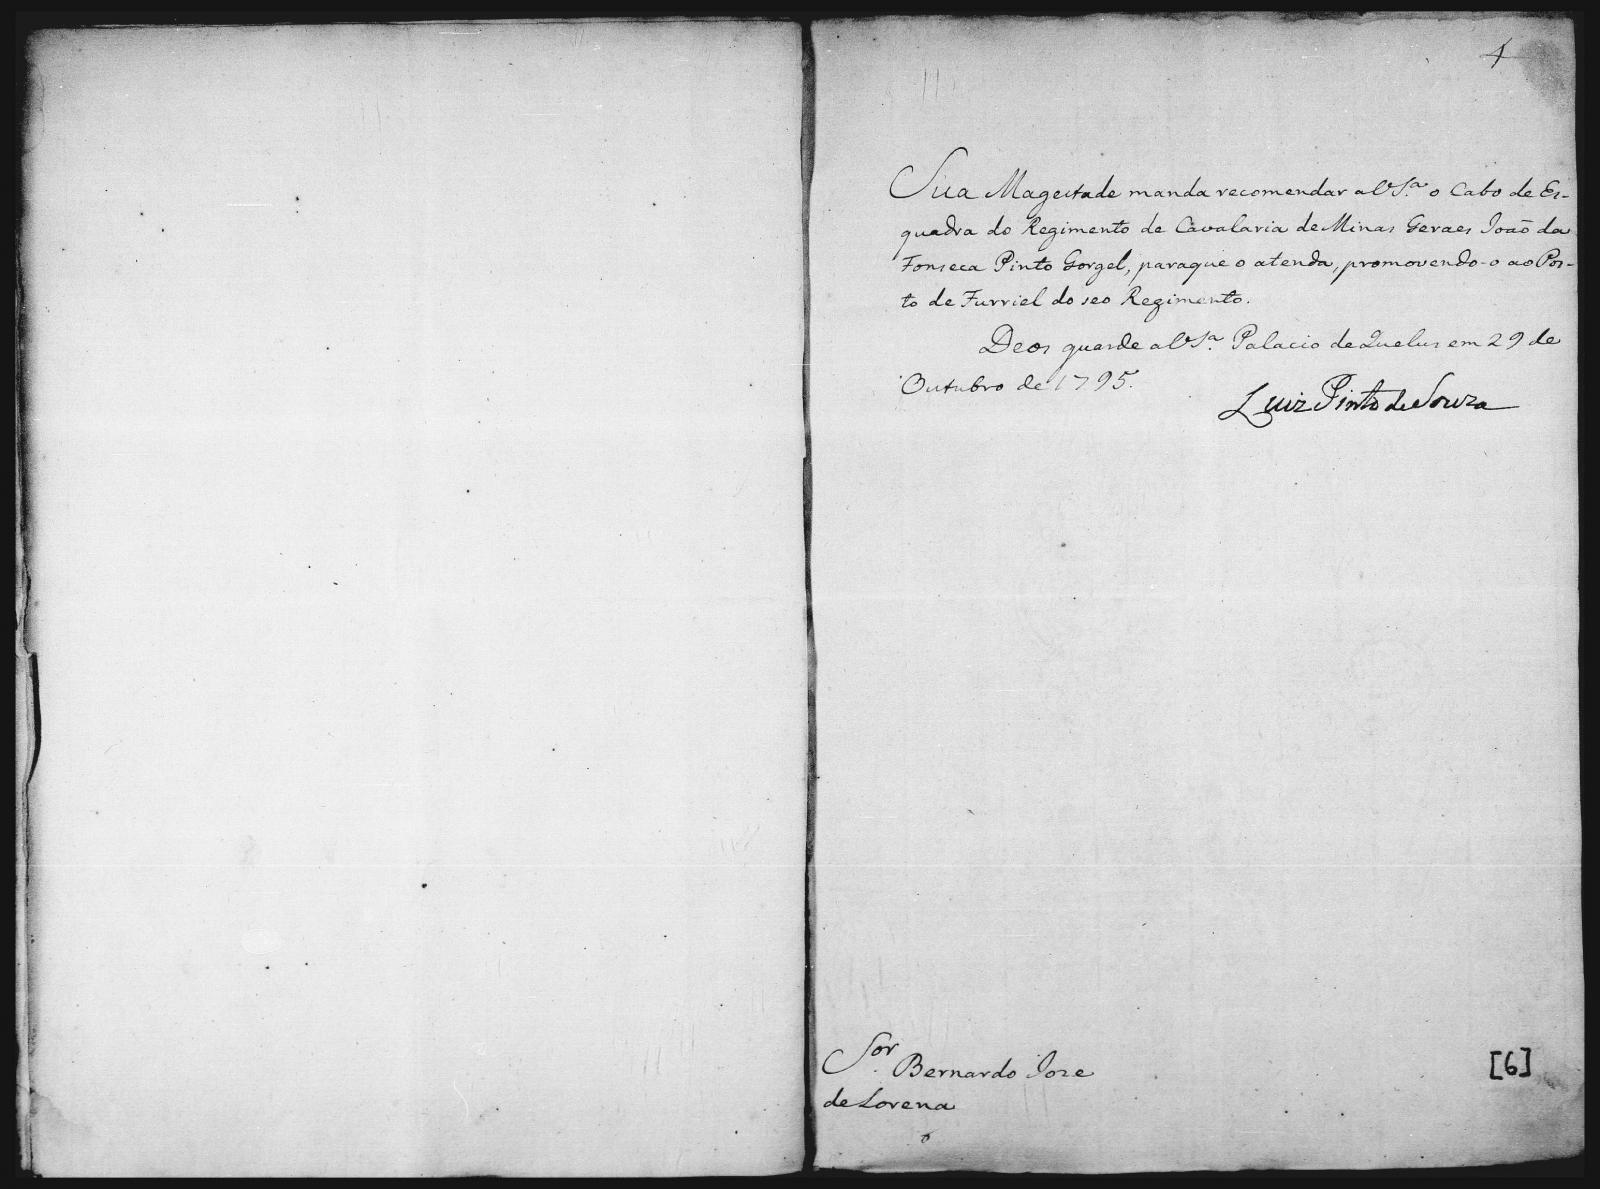 4
Sua Magestade manda recomendar a V S.ª o Cabo de Es-
quadra do Regimento de Cavalaria de Minas Geraes João da
Fonseca Pinto Gorgel, paraque o atenda, promovendo-o ao Pos-
to de Furriel do seo Regimento.
Deos guarde a V S.ª Palacio de Quelus em 29 de
Outubro de 1795.
Luiz Pinto de Souza
S.or Bernardo Joze
de Lorena
[6]